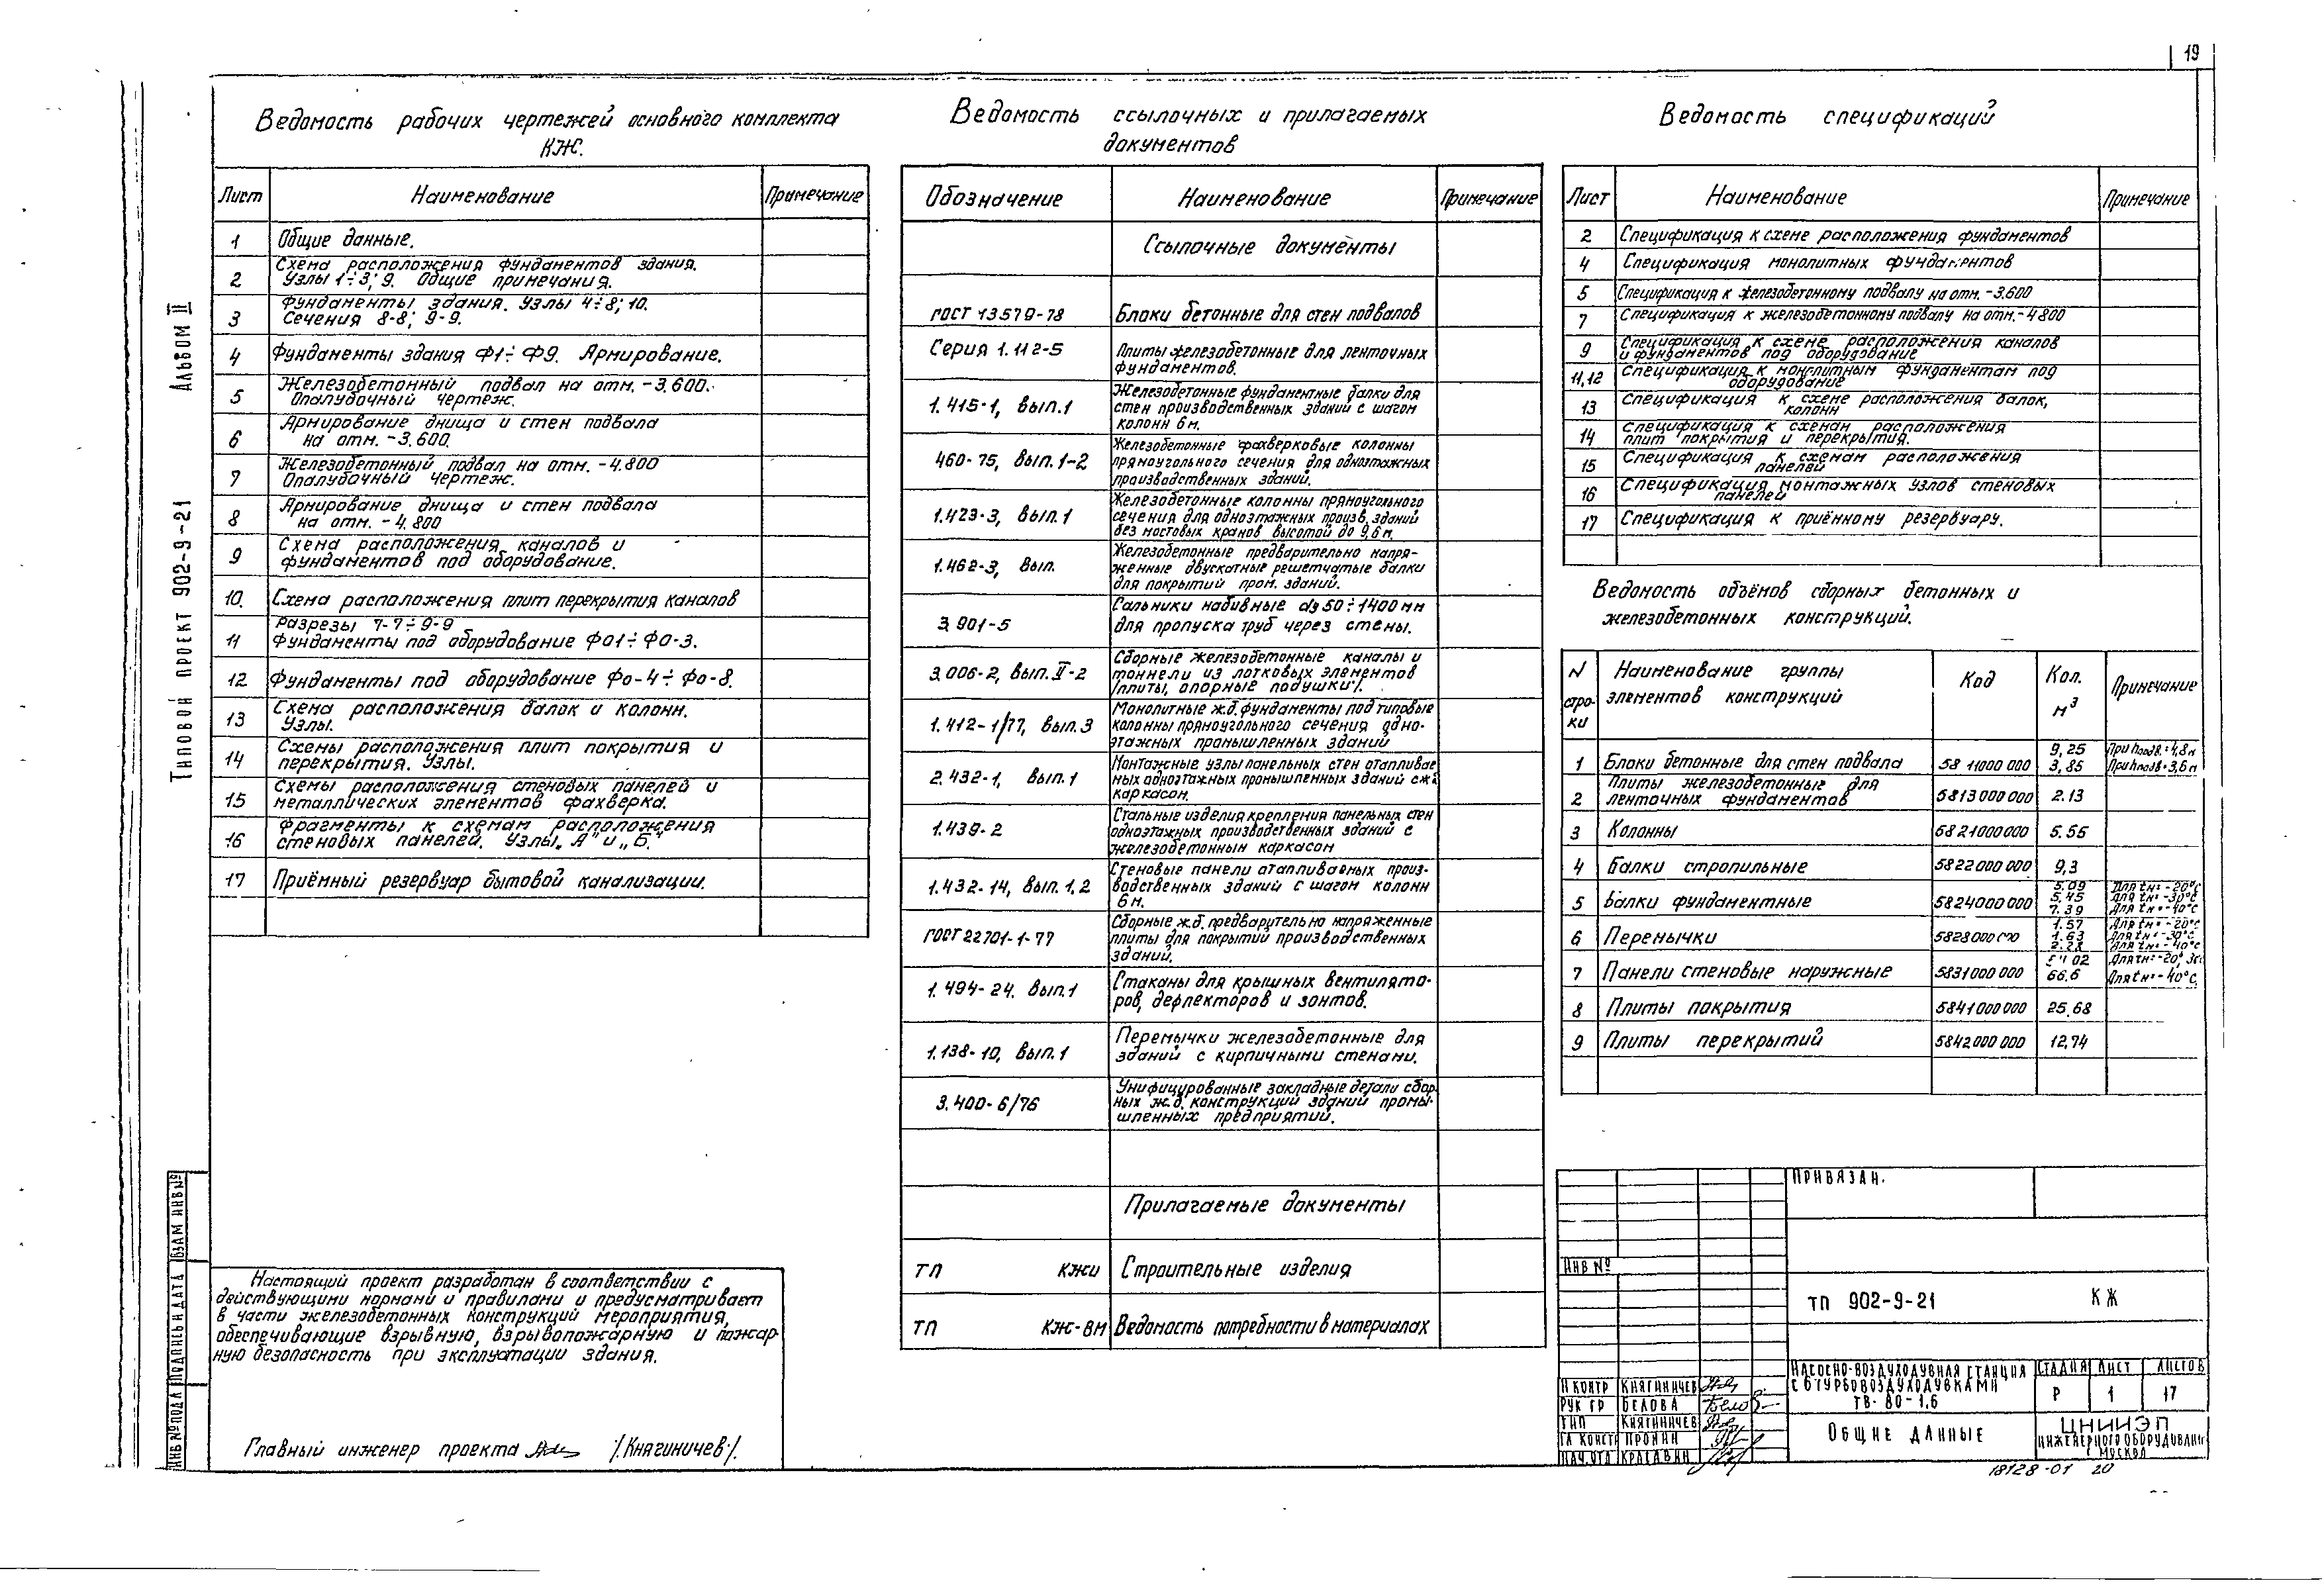 19
Альбом II
Типовой проект 902-9-21
Ведомость рабочих чертежей основного комплекта
КЖ.
Лист Наименование Примечание
1 Общие данные.
2 Схема расположения фундаментов здания.
Узлы 1÷3; 9. Общие примечания.
3 Фундаменты здания. Узлы 4÷8; 10.
Сечения 8-8; 9-9.
4 Фундаменты здания Ф1÷Ф9. Армирование.
5 Железобетонный подвал на отм. -3.600.
Опалубочный чертеж.
6 Армирование днища и стен подвала
на отм. -3.600.
7 Железобетонный подвал на отм. -4.800
Опалубочный чертеж.
8 Армирование днища и стен подвала
на отм. -4.800
9 Схема расположения каналов и
фундаментов под оборудование.
10. Схема расположения плит перекрытия каналов
Разрезы 7-7÷9-9
11 Фундаменты под оборудование Фо1÷Фо-3.
12 Фундаменты под оборудование Фо-4÷Фо-8.
13 Схема расположения балок и колонн.
Узлы.
14 Схемы расположения плит покрытия и
перекрытия. Узлы.
15 Схемы расположения стеновых панелей и
металлических элементов фахверка.
16 Фрагменты к схемам расположения
стеновых панелей. Узлы „А" и „Б."
17 Приёмный резервуар бытовой канализации.
Настоящий проект разработан в соответствии с
действующими нормами и правилами и предусматривает
в части железобетонных конструкций мероприятия,
обеспечивающие взрывную, взрывопожарную и пожар-
ную безопасность при эксплуатации здания.
Главный инженер проекта /.Княгиничев./.
Ведомость ссылочных и прилагаемых
документов
Обозначение Наименование Примечание
Ссылочные документы
ГОСТ 13579-78 Блоки бетонные для стен подвалов
Серия 1.112-5 Плиты железобетонные для ленточных
фундаментов.
1.415-1, вып.1 Железобетонные фундаментные балки для
стен производственных зданий с шагом
колонн 6м.
460-75, вып. 1-2 Железобетонные фахверковые колонны
прямоугольного сечения для одноэтажных
производственных зданий.
1.423-3, вып.1 Железобетонные колонны прямоугольного
сечения для одноэтажных произв. зданий
без мостовых кранов высотой до 9,6м.
1.462-3, вып. Железобетонные предварительно напря-
женные двускатные решетчатые балки
для покрытий пром. зданий.
3.901-5 Сальники набивные dy 50÷1400 мм
для пропуска труб через стены.
3.006-2, вып. II-2 Сборные железобетонные каналы и
тоннели из лотковых элементов
/плиты, опорные подушки/.
1.412-1/77, вып.3 Монолитные ж.б. фундаменты под типовые
колонны прямоугольного сечения одно-
этажных промышленных зданий
2.432-1, вып.1 Монтажные узлы панельных стен отапливае
мых одноэтажных промышленных зданий с ж.б
каркасом.
1.439-2 Стальные изделия крепления панельных стен
одноэтажных производственных зданий с
железобетонным каркасом
1.432-14, вып. 1,2 Стеновые панели отапливаемых произ-
водственных зданий с шагом колонн
6м.
ГОСТ 22701-1-77 Сборные ж.б. предварительно напряженные
плиты для покрытий производственных
зданий.
1.494-24. Вып.1 Стаканы для крышных вентилято-
ров, дефлекторов и зонтов.
1.138-10, вып.1 Перемычки железобетонные для
зданий с кирпичными стенами.
3.400-6/76 Унифицированные закладные детали сбор
ных ж.б. конструкций зданий промы-
шленных предприятий.
Прилагаемые документы
ТП КЖИ Строительные изделия
ТП КЖ-ВМ Ведомость потребности в материалах
Ведомость спецификаций
Лист Наименование Примечание
2 Спецификация к схеме расположения фундаментов
4 Спецификация монолитных фундаментов
5 Спецификация к железобетонному подвалу на отм. -3.600
7 Спецификация к железобетонному подвалу на отм. -4800
9 Спецификация к схеме расположения каналов
и фундаментов под оборудование
11,12 Спецификация к монолитным фундаментам под
оборудование
13 Спецификация к схеме расположения балок,
колонн
14 Спецификация к схемам расположения
плит покрытия и перекрытия.
15 Спецификация к схемам расположения
панелей
16 Спецификация монтажных узлов стеновых
панелей
17 Спецификация к приёмному резервуару.
Ведомость объёмов сборных бетонных и
железобетонных конструкций.
N стро-ки Наименование группы элементов конструкций Код Кол. м³ Примечание
1 Блоки бетонные для стен подвала 5811000000 9,25 При hподв.=4,8м
3,85 При hподв=3,6м
2 Плиты железобетонные для
ленточных фундаментов 5813000000 2.13
3 Колонны 5821000000 5.55
4 Балки стропильные 5822000000 9,3
5 Балки фундаментные 5824000000 5.09 Для tн=-20°с
5.45 Для tн=-30°с
7.39 Для tн=-40°с
6 Перемычки 5828000000 1.57 Для tн=-20°с
1.63 Для tн=-30°с
Для tн=-40°с
7 Панели стеновые наружные 5831000000
66.6 Для tн=-40°с.
8 Плиты покрытия 5841000000 25.68
9 Плиты перекрытий 5842000000 12,74
Привязан.
Инв №
ТП 902-9-21 КЖ
Насосно-воздуходувная станция
с 6 турбовоздуходувками
ТВ-80-1.6
Стадия Лист Листов
Р 1 17
Общие данные
ЦНИИЭП
инженерного оборудования
г. Москва
Н контр Княгиничев
Рук гр Белова
ГИП Княгиничев
Гл констр Пронин
Нач отд Красавин
Взам инв №
Подпись и дата
Инв № подл
18128-01 20